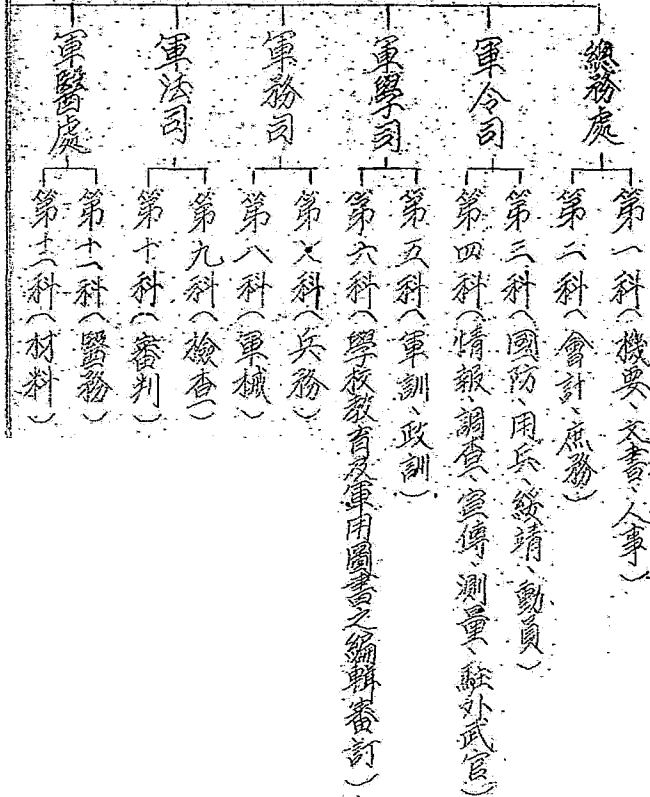 總務處
第一科(機要、文書、人事)
第二科(會計、庶務)
軍令司
第三科(國防、用兵、綏靖、動員)
第四科(情報、調查、宣傳、測量、駐外武官)
軍學司
第五科(軍訓、政訓)
第六科(學校教育及軍用圖書之編輯審訂)
軍務司
第七科(兵務)
第八科(軍械)
軍法司
第九科(檢查)
第十科(審判)
軍醫處
第十一科(醫務)
第十二科(材料)